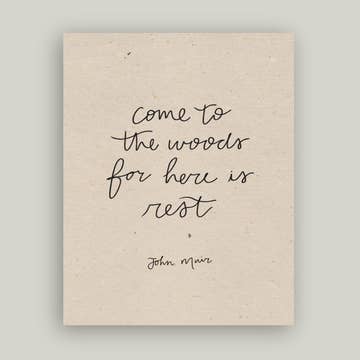 come to
the woods
for here is
rest
John Muir